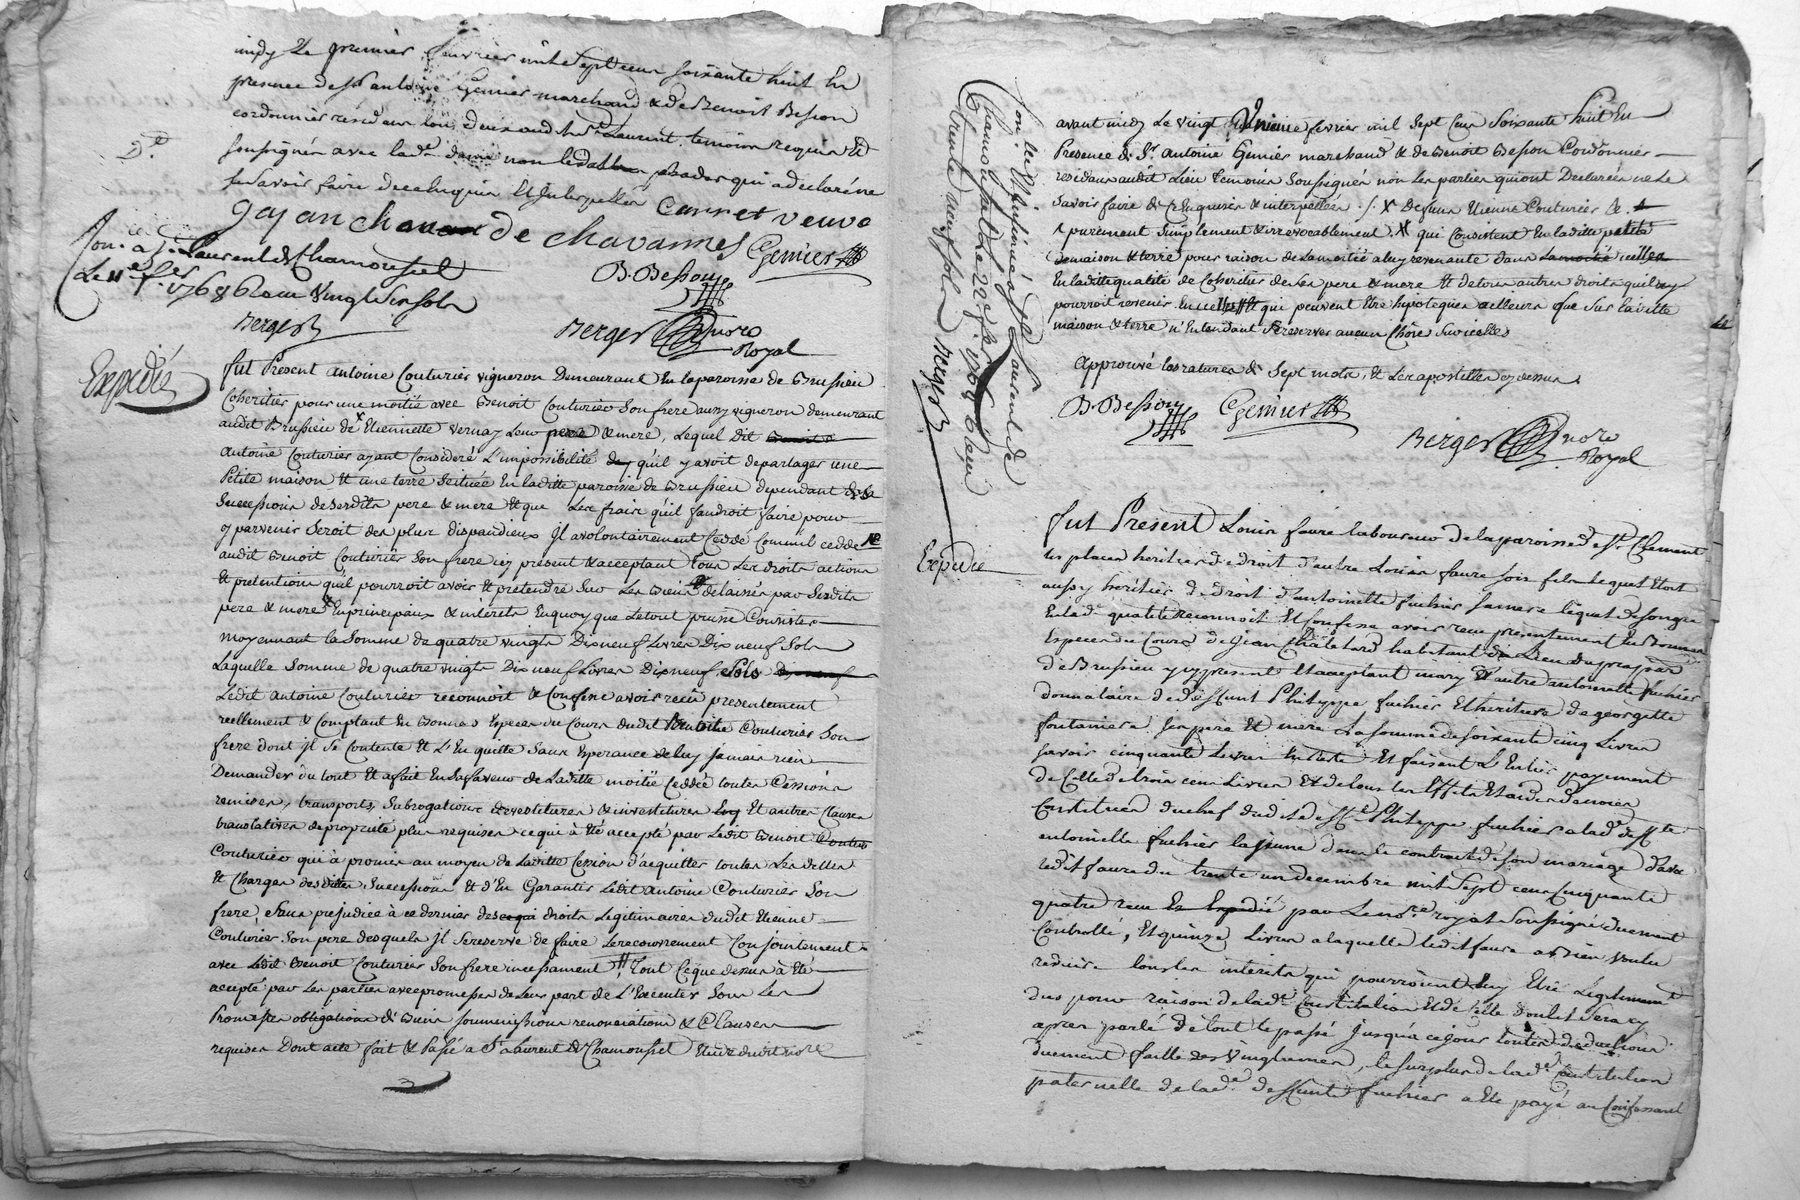 midy Le premier fevrier mil sept cent soixante huit En
presence de Sr antoine Genier marchand & de Benoit Besson
cordonnier residants aud. St Laurent temoins requis &
soussignés avec lade. dame non qui a declaré ne
savoir faire de ce enquis Et Interpellés Carret veuve
de chavannes Genier
B. Besson
Con. a St Laurent de Chamousset
Le 11e f.er 1768 vingt six sols
Berger
Berger nore
Royal
Expedié
fut Present antoine Couturier vigneron Demeurant En la paroisse de Brussieu
Coheritier pour une moitié avec Benoit Couturier Son frere aussy vigneron demeurant
audit Brussieu de Etiennette Vernay Leur pere & mere, Lequel dit
antoine Couturier ayant Consideré L'impossibilité qu'il y avoit de partager une
Petite maison Et une terre Scituée En laditte paroisse de Brussieu dependant de la
Succession de Sesdits pere & mere Et que Les fraix qu'il faudroit faire pour
y parvenir Seroit des plus dispandieux Il a volontairement Ceddé Comm'il cedde
audit Benoit Couturier Son frere icy present & acceptant tous Les droits actions
& pretentions qu'il pourroit avoir & pretendre Sur Les Biens delaissés par Sesdits
pere & mere En principaux & interets En quoy que Le tout puisse Consister
moyennant la Somme de quatre vingts Dix neuf Livres Dix neuf Sols
Laquelle Somme de quatre vingts Dix neuf Livres Dix neuf Sols
Ledit Antoine Couturier reconnoit & Confesse avoir reçu presentement
reellement & Comptant En Bonnes Especes du Cours dudit Benoit Couturier Son
frere dont Il Se Contente Et L'En quitte Sans Esperance de luy Jamais rien
Demander du tout Et a fait En Sa faveur de Laditte moitié Ceddée toutes Cessions
remises, transports, Subrogations devestitures & investitures Et autres Clauses
translatives de proprieté plus requises ce qui à Eté accepté par Ledit Benoit
Couturier qui à promis au moyen de Laditte Cession d'acquitter toutes Les dettes
& Charges desdittes Successions Et d'En Garantir Ledit Antoine Couturier Son
frere, Sans prejudice à ce dernier des droits Legitimaires dudit Etienne
Couturier Son pere desquels Il Se reserve de faire Le recouvrement Conjointement
avec Ledit Benoit Couturier Son frere incessament Tout Ce que dessus à Eté
accepté par Les parties avec promesses de Leur part de L'Executer Sous Les
Promesses obligations de Biens soumissions renonciations & Clauses
requises Dont acte fait & Passé a St Laurent de Chamousset Etude dudit nore
Con. Et Insinué a St Laurent de
Chamousset Le 22 f.er 1768
Berger
avant midy Le vingt fevrier mil Sept Cent Soixante huit En
Presence de Sr. Antoine Genier marchand & de Benoit Besson Cordonnier
residans audit Lieu temoins Soussignés non Les parties qui ont Declarées ne Le
Savoir faire de ce Enquises & interpellées. defunt Etienne Couturier &
purement Simplement & irrevocablement, qui Consistent En laditte petite
maison & terre pour raison de La moitié a luy revenante dans
En laditte qualité de Coheritier de Ses pere & mere Et de tous autres droits qu'il
pourroit revenir qui peuvent Etre hipotequés ailleurs que Sur laditte
maison & terre n'Entendant Se reserver aucune Chose Sur icelles
Approuvé Les ratures de Sept mots, Et Les apostilles cy dessus
B. Besson Genier
Berger nore
Royal
Expedié
fut Present Louis faure laboureur de la paroisse de St. Clement
les places heritier de droit d'autre Louis faure son fils Lequel Etoit
aussy heritier de droit d'antoinette fuchier Sa mere lequel de Son gré
En lad. qualité Reconnoit Et Confesse avoir reçu presentement En Bonnes
Especes du Cours de Jean Chatelard habitant
de Brussieu y present Et acceptant mary d'autre antoinette fuchier
donnataire de deffunt Philippe fuchier Et heritiere de georgette
fontaniere Ses pere Et mere La Somme de Soixante cinq Livres
Savoir cinquante Livres En reste Et faisant L'Entier payement
de Celle de trois cens Livres
Constitués du chef dudit deff.t Philippe fuchier a lade. deff.te
antoinette fuchier la jeune dans le contract de Son mariage d'avec
ledit faure du trente un decembre mil Sept cens Cinquante
quatre reçu par Le nore. royal Soussigné duement
Controllé, Et quinze Livres a laquelle ledit faure a bien voulu
reduire tous les interets qui pourroient luy Etre Legitimement
dus pour raison de lade. Constitution Et de Celle dont il Sera cy
apres parlé de tout le passé Jusqu'a ce jour toutes deductions
duement faittes des vingtiemes, le Surplus de lade. Constitution
paternelle de lade. deffunte fuchier a Eté payé au